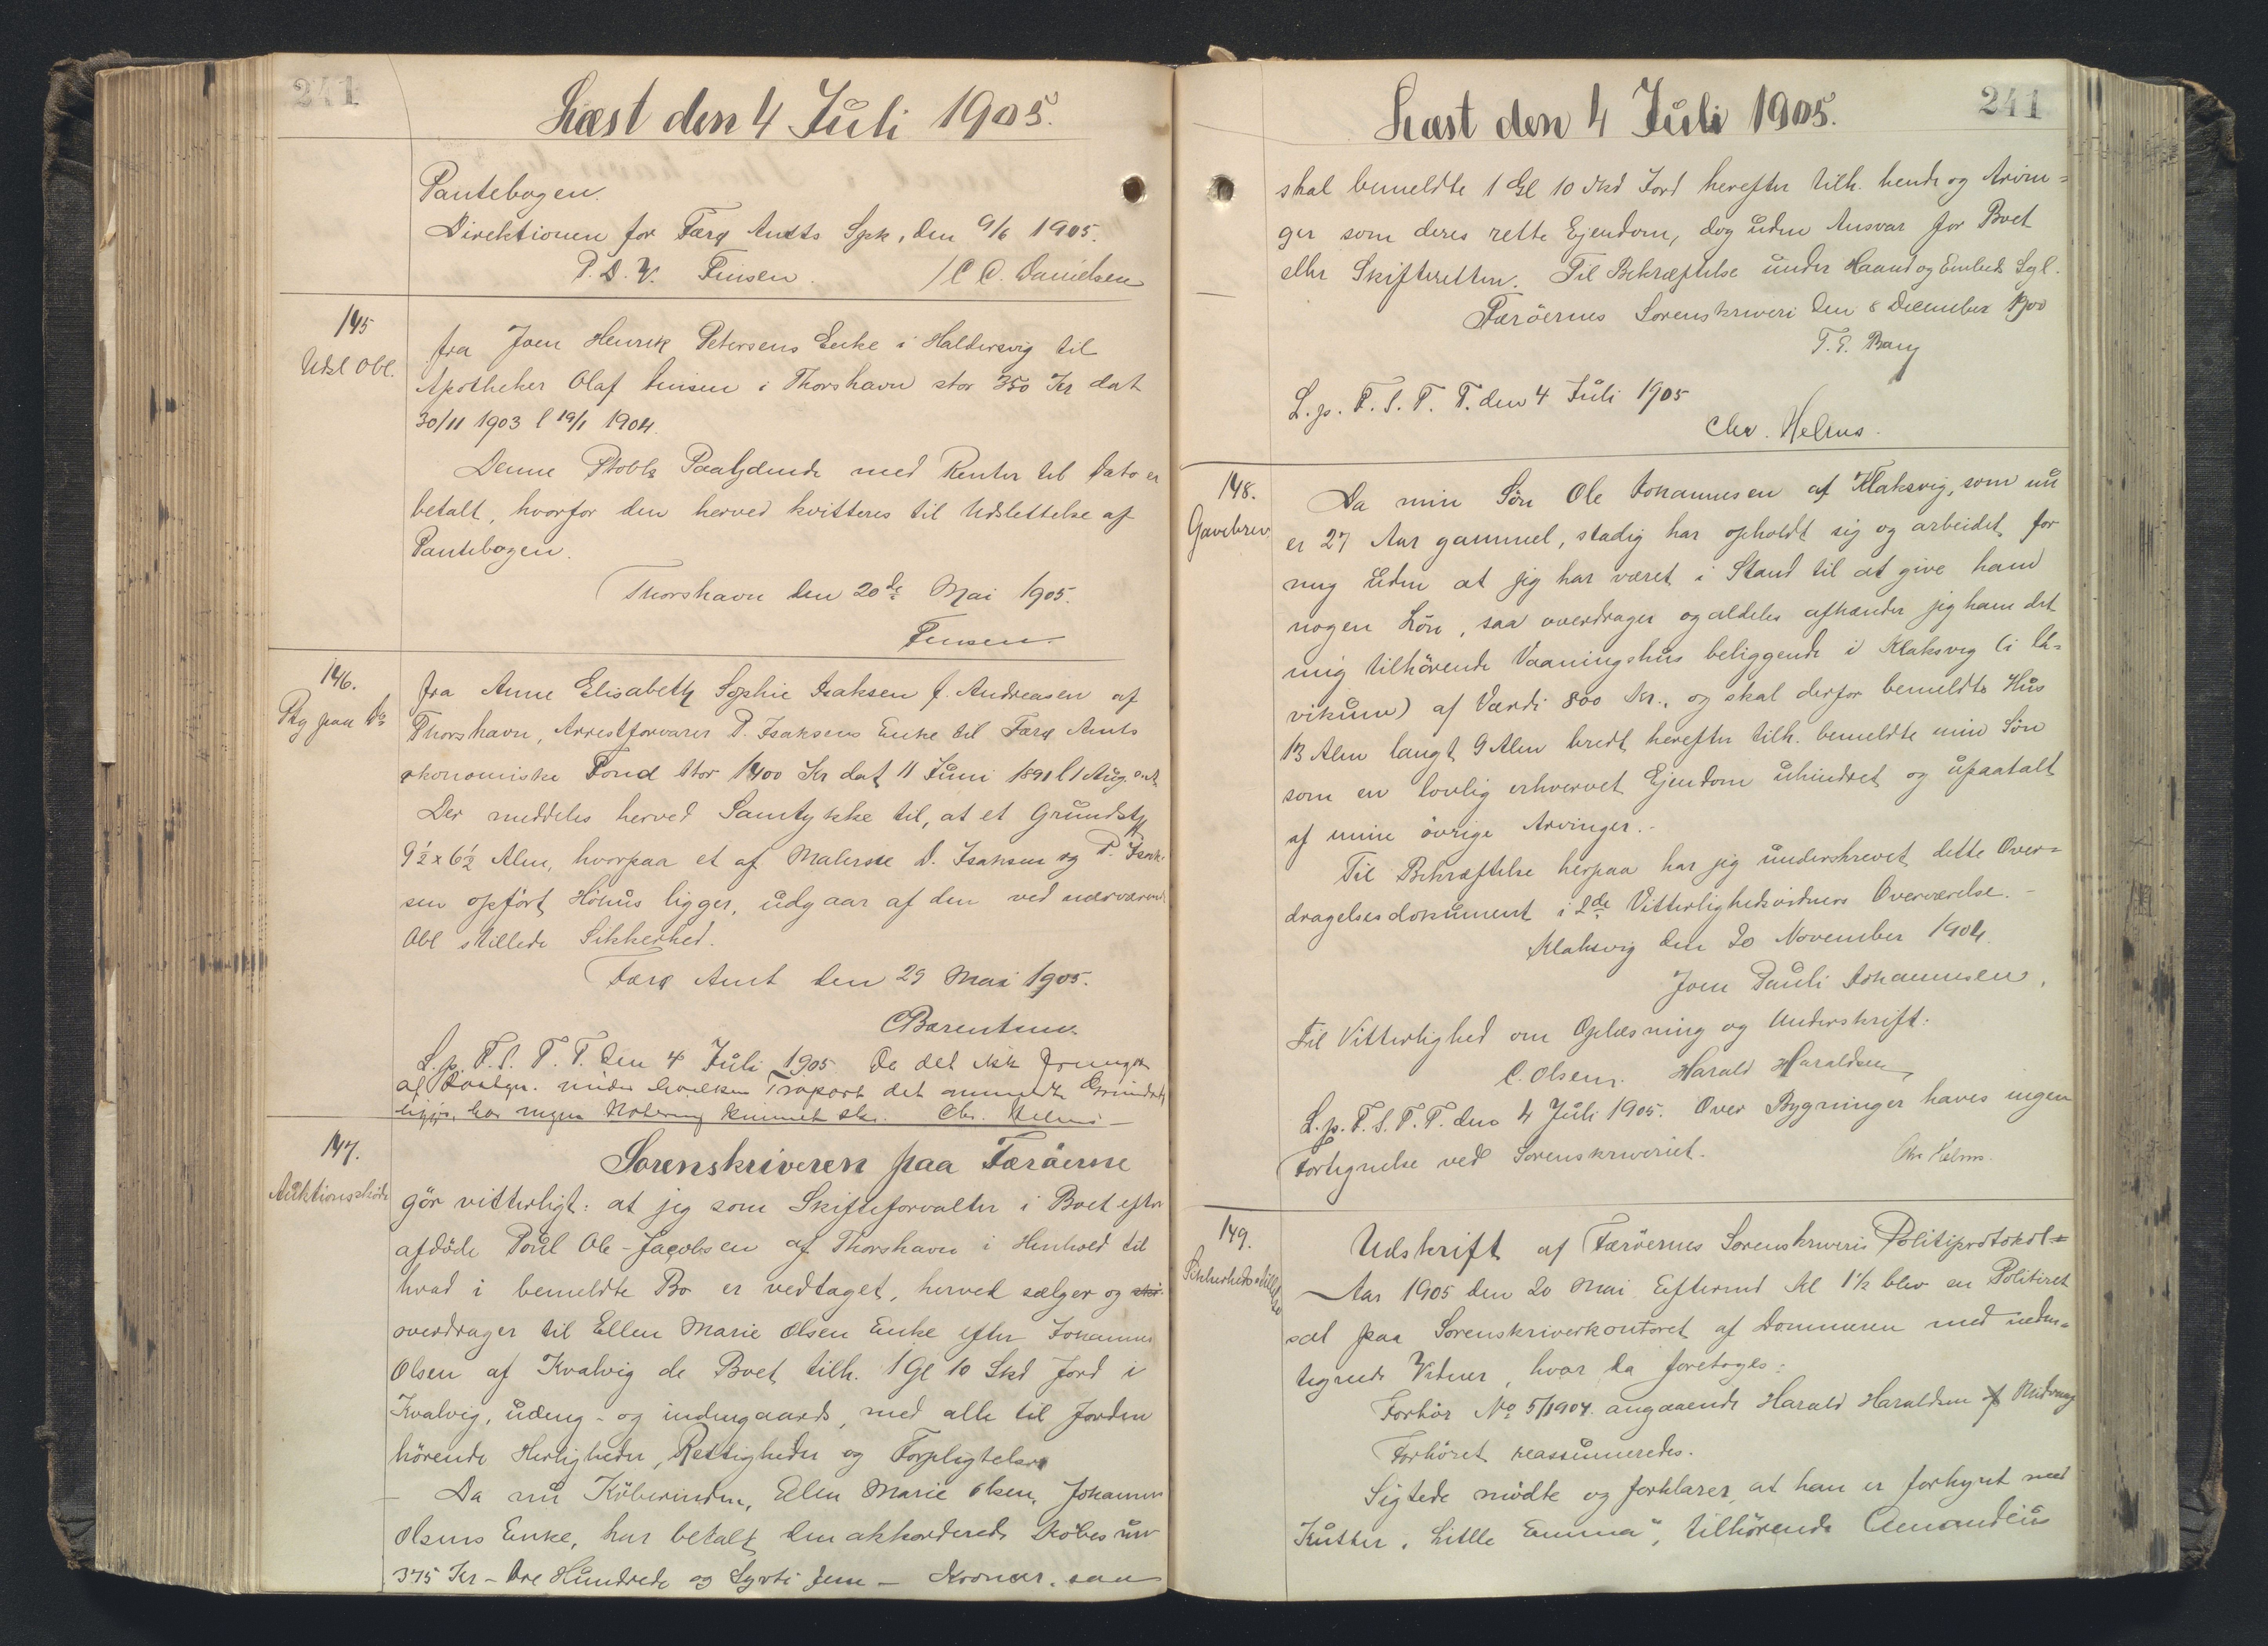 241
Læst den 4 Juli 1905.
Pantebogen.
Direktionen for Færø Amts Spk, den 9/6 1905.
P. D. V. Finsen. / C C. Danielsen
145
Udsl Obl.
fra Joen Henrik Petersens Enke i Haldersvig til
Apotheker Olaf Finsen i Thorshavn stor 350 Kr dat
30/11 1903 l 19/1 1904.
Denne Paalydende med Renter til Dato er
betalt, hvorfor den herved kvitteres til Udslettelse af
Pantebogen.
Thorshavn den 20de Mai 1905.
Finsen
146.
Ptg paa Do
fra Anne Elisabeth Sophie Isaksen f. Andreasen af
Thorshavn, Arrestforvarer P. Isaksens Enke til Færø Amts
økonomiske Fond stor 1400 Kr dat 11 Juni 1891 l 1 Aug.
Der meddeles herved Samtykke til, at et Grundst
9½ x 6½ Alen, hvorpaa et af Malerne D. Isaksen og P. Isak-
sen opført Höhus ligger, udgaar af den ved nærværende
Obl stillede Sikkerhed.
Færø Amt den 29 Mai 1905.
CBærentsen.
L. p. F. S. T. T. den 4 Juli 1905. Da det ikke fremgaar
af under hvilken det ommeldte Grundst
ligger, har ingen Notering kunnet ske. Chr. Helms
147.
Auktionsskøde
Sorenskriveren paa Færöerne
gör vitterligt: at jeg som Skifteforvalter i Boet efter
afdöde Poul Ole Jacobsen af Thorshavn i Henhold til
hvad i bemeldte Bo er vedtaget, herved sælger og skö-
overdrager til Ellen Marie Olsen Enke efter Johannes
Olsen af Kvalvig de Boet tilh. 1 Gl 10 Skd Jord i
Kvalvig, udeng- og indengaards, med alle til Jorden
hörende Herligheder, Rettigheder og Forpligtelser
Da nu Köberinden, Ellen Marie Olsen, Johannes
Olsens Enke, har betalt den akkorderede Köbesum
375 Kr - Tre Hundrede og Syvti fem - Kroner, saa
241
Læst den 4 Juli 1905.
skal bemeldte 1 Gl 10 Skd Jord herefter tilh. hende og Arvin-
ger som deres rette Ejendom, dog uden Ansvar for Boet
eller Skifteretten. Til Bekræftelse under Haand og Embeds Segl.
Færöernes Sorenskriveri den 8 December 1900
T. E. Bang
L. p. F. S. T. T. den 4 Juli 1905
Chr. Helms.
148.
Gavebrev.
Da min Sön Ole Johannesen af Klaksvig, som nu
er 27 Aar gammel, stadig har opholdt sig og arbeidet for
mig uden at jeg har været i Stand til at give ham
nogen Lön, saa overdrager og aldeles afhænder jeg ham det
mig tilhörende Vaaningshus beliggende i Klaksvig (i Uä-
vikum) af Værdi 800 Kr., og skal derfor bemeldte Hus
13 Alen langt 9 Alen bredt herefter tilh. bemeldte min Sön
som en lovlig erhvervet Ejendom uhindret og upaatalt
af mine övrige Arvinger.
Til Bekræftelse herpaa har jeg underskrevet dette Over-
dragelsesdokument i 2de Vitterlighedsvidners Overværelse.
Klaksvig den 20 November 1904.
Joen Pauli Johannesen.
Til Vitterlighed om Oplæsning og Underskrift:
C. Olsen. Harald Haraldsen
L. p. F. S. T. T. den 4 Juli 1905. Over Bygninger haves ingen
Fortegnelse ved Sorenskriveriet. Chr Helms.
149.
Sikkerhedsstillelse
Udskrift af Færöernes Sorenskriveris Politiprotokol-
Aar 1905 den 20 Mai Efterm Kl 1½ blev en Politiret
sat paa Sorenskriverkontoret af Dommeren med neden-
tegnede Vidner, hvor da foretoges:
Forhör No 5/1904 angaaende Harald Haraldsen af Midvaag
Forhöret reassumeredes.
Sigtede mödte og forklarer, at han er forhyret med
Kutter "Lille Emma", tilhörende Amandeus